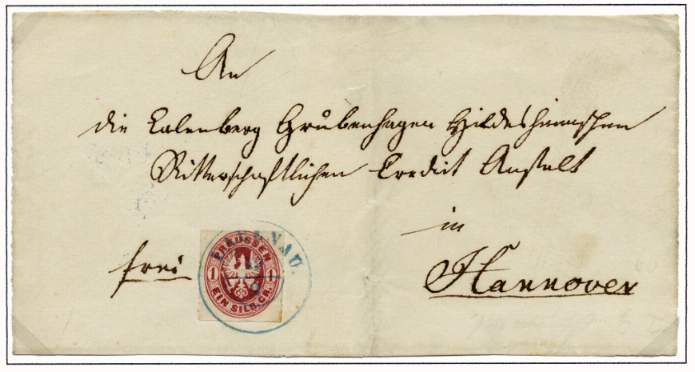 An
die Calenberg Grubenhagen Hildesheimschen
Ritterschaftlichen Credit Anstalt
in
Hannover
frei
PREUSSEN
1 1
EIN SILB.GR.